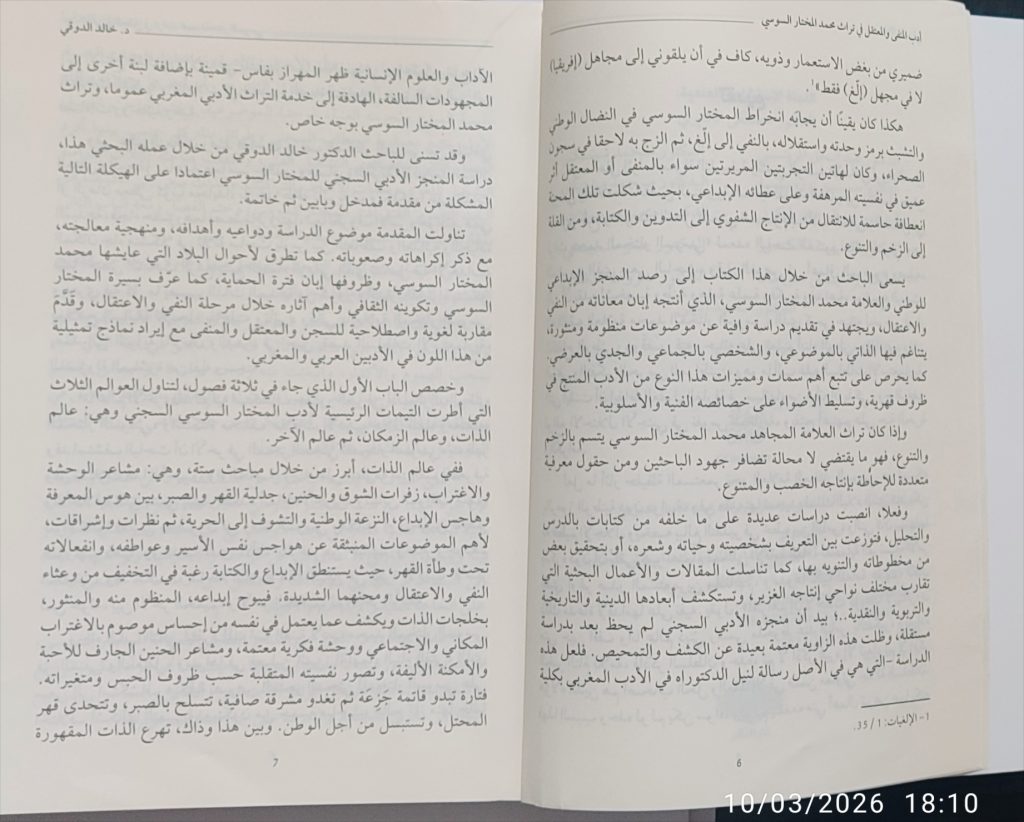 أدب المنفى والمعتقل في تراث محمد المختار السوسي
ضميري من بغض الاستعمار وذويه، كاف في أن يلقوني إلى مجاهل (إفريقيا)
لا في مجهل (إلّغ) فقط»¹.
هكذا كان يقينًا أن يجابَه انخراط المختار السوسي في النضال الوطني
والتشبث برمز وحدته واستقلاله، بالنفي إلى إلّغ، ثم الزج به لاحقا في سجون
الصحراء، وكان لهاتين التجربتين المريرتين سواء بالمنفى أو المعتقل أثر
عميق في نفسيته المرهفة وعلى عطائه الإبداعي، بحيث شكلت تلك المحنة
انعطافة حاسمة للانتقال من الإنتاج الشفوي إلى التدوين والكتابة، ومن القلة
إلى الزخم والتنوع.
يسعى الباحث من خلال هذا الكتاب إلى رصد المنجز الإبداعي
للوطني والعلامة محمد المختار السوسي، الذي أنتجه إبان معاناته من النفي
والاعتقال، ويجتهد في تقديم دراسة وافية عن موضوعات منظومة ومنثورة،
يتناغم فيها الذاتي بالموضوعي، والشخصي بالجماعي والجدي بالعرضي.
كما يحرص على تتبع أهم سمات ومميزات هذا النوع من الأدب المنتج في
ظروف قهرية، وتسليط الأضواء على خصائصه الفنية والأسلوبية.
وإذا كان تراث العلامة المجاهد محمد المختار السوسي يتسم بالزخم
والتنوع، فهو ما يقتضي لا محالة تضافر جهود الباحثين ومن حقول معرفية
متعددة للإحاطة بإنتاجه الخصب والمتنوع.
وفعلا، انصبت دراسات عديدة على ما خلفه من كتابات بالدرس
والتحليل، فتوزعت بين التعريف بشخصيته وحياته وشعره، أو بتحقيق بعض
من مخطوطاته والتنويه بها، كما تناسلت المقالات والأعمال البحثية التي
تقارب مختلف نواحي إنتاجه الغزير، وتستكشف أبعادها الدينية والتاريخية
والتربوية والنقدية..؛ بيد أن منجزه الأدبي السجني لم يحظ بعد بدراسة
مستقلة، وظلت هذه الزاوية معتمة بعيدة عن الكشف والتمحيص. فلعل هذه
الدراسة -التي هي في الأصل رسالة لنيل الدكتوراه في الأدب المغربي بكلية
1- الإلغيات: 1/ 35.
6
د. خالد الدوقي
الآداب والعلوم الإنسانية ظهر المهراز بفاس- قمينة بإضافة لبنة أخرى إلى
المجهودات السالفة، الهادفة إلى خدمة التراث الأدبي المغربي عموما، وتراث
محمد المختار السوسي بوجه خاص.
وقد تسنى للباحث الدكتور خالد الدوقي من خلال عمله البحثي هذا،
دراسة المنجز الأدبي السجني للمختار السوسي اعتمادا على الهيكلة التالية
المشكلة من مقدمة فمدخل وبابين ثم خاتمة.
تناولت المقدمة موضوع الدراسة ودواعيه وأهدافه، ومنهجية معالجته،
مع ذكر إكراهاته وصعوباته. كما تطرق لأحوال البلاد التي عايشها محمد
المختار السوسي، وظروفها إبان فترة الحماية، كما عرّف بسيرة المختار
السوسي وتكوينه الثقافي وأهم آثاره خلال مرحلة النفي والاعتقال، وقَدَّمَ
مقاربة لغوية واصطلاحية للسجن والمعتقل والمنفى مع إيراد نماذج تمثيلية
من هذا اللون في الأدبين العربي والمغربي.
وخصص الباب الأول الذي جاء في ثلاثة فصول، لتناول العوالم الثلاث
التي أطرت التيمات الرئيسية لأدب المختار السوسي السجني وهي: عالم
الذات، وعالم الزمكان، ثم عالم الآخر.
ففي عالم الذات، أبرز من خلال مباحث ستة، وهي: مشاعر الوحشة
والاغتراب، زفرات الشوق والحنين، جدلية القهر والصبر، بين هوس المعرفة
وهاجس الإبداع، النزعة الوطنية والتشوف إلى الحرية، ثم نظرات وإشراقات،
لأهم الموضوعات المنبثقة عن هواجس نفس الأسير وعواطفه، وانفعالاته
تحت وطأة القهر، حيث يستنطق الإبداع والكتابة رغبة في التخفيف من وعثاء
النفي والاعتقال ومحنهما الشديدة. فيبوح إبداعه، المنظوم منه والمنثور،
بخلجات الذات ويكشف عما يعتمل في نفسه من إحساس موصوم بالاغتراب
المكاني والاجتماعي ووحشة فكرية معتمة، ومشاعر الحنين الجارف للأحبة
والأمكنة الأليفة، وتصور نفسيته المتقلبة حسب ظروف الحبس ومتغيراته.
فتارة تبدو قاتمة جَزِعَة ثم تغدو مشرقة صافية، تتسلح بالصبر، وتتحدى قهر
المحتل، وتستبسل من أجل الوطن. وبين هذا وذاك، تهرع الذات المقهورة
7
10/03/2026 18:10